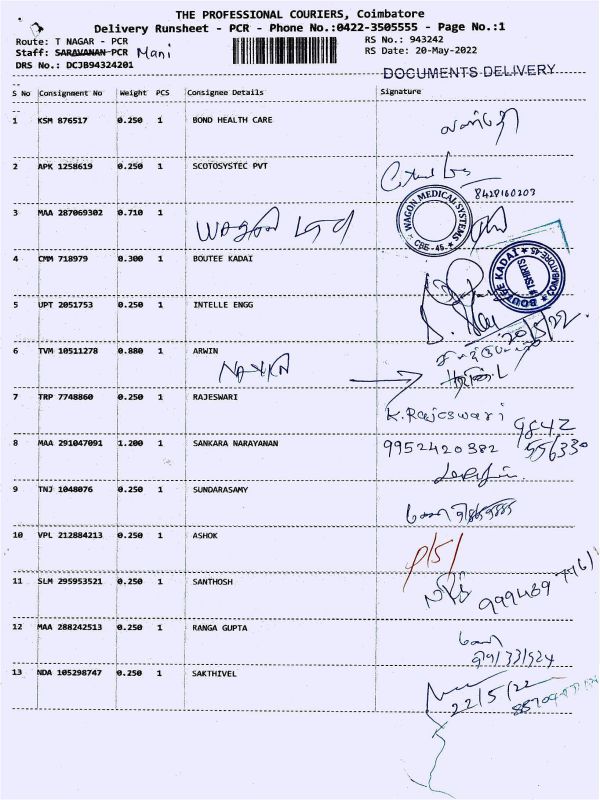 THE PROFESSIONAL COURIERS, Coimbatore
Delivery Runsheet - PCR - Phone No.:0422-3505555 - Page No.:1
Route: T NAGAR - PCR
RS No.: 943242
Staff: SARAVANAN-PCR Mani
RS Date: 20-May-2022
DRS No.: DCJB94324201
DOCUMENTS DELIVERY
S No Consignment No Weight PCS Consignee Details Signature
1 KSM 876517 0.250 1 BOND HEALTH CARE
2 APK 1258619 0.250 1 SCOTOSYSTEC PVT
8428160203
WAGON MEDICAL SYSTEMS
CBE - 45
3 MAA 287069302 0.710 1
4 CMM 718979 0.300 1 BOUTEE KADAI
BOUTEE KADAI
TSHIRTS
COIMBATORE-45
5 UPT 2051753 0.250 1 INTELLE ENGG
20/5/22
6 TVM 10511278 0.880 1 ARWIN
7 TRP 7748860 0.250 1 RAJESWARI
K.Rajeswari 9842
556330
8 MAA 291047091 1.200 1 SANKARA NARAYANAN
9952420382
9 TNJ 1048076 0.250 1 SUNDARASAMY
10 VPL 212884213 0.250 1 ASHOK
11 SLM 295953521 0.250 1 SANTHOSH
12 MAA 288242513 0.250 1 RANGA GUPTA
13 NDA 105298747 0.250 1 SAKTHIVEL
22/5/22